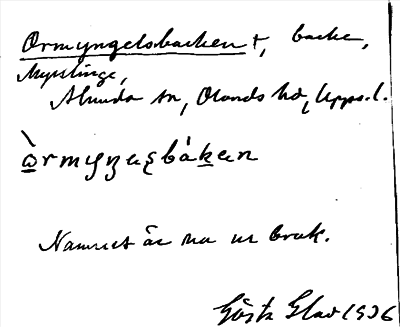 Ormyngelsbacken †, backe,
Myrlinge,
Alunda sn, Olands hd, Upps. l.
ὼrmyŋəsbákən
Namnet är nu ur bruk.
Gösta Glad 1936